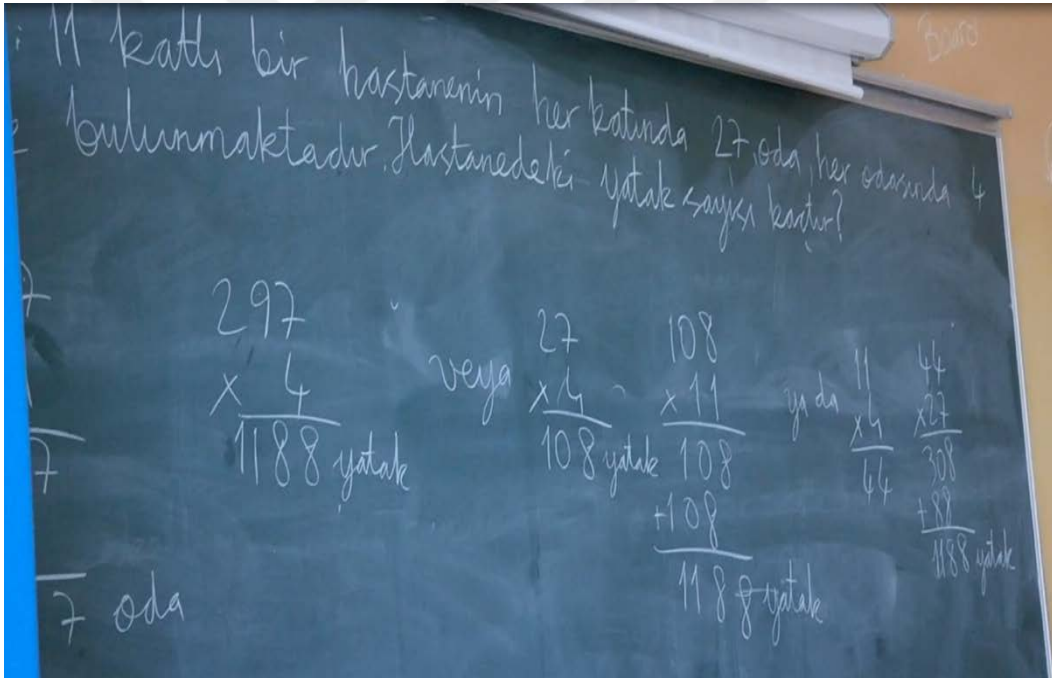 11 katlı bir hastanenin her katında 27 oda, her odasında 4
bulunmaktadır. Hastanedeki yatak sayısı kaçtır?
297
x 4
1188 yatak
veya
27
x4
108 yatak
108
x 11
108
+108
1188 yatak
ya da
11
x4
44
44
x27
308
+88
1188 yatak
7
7
7 oda